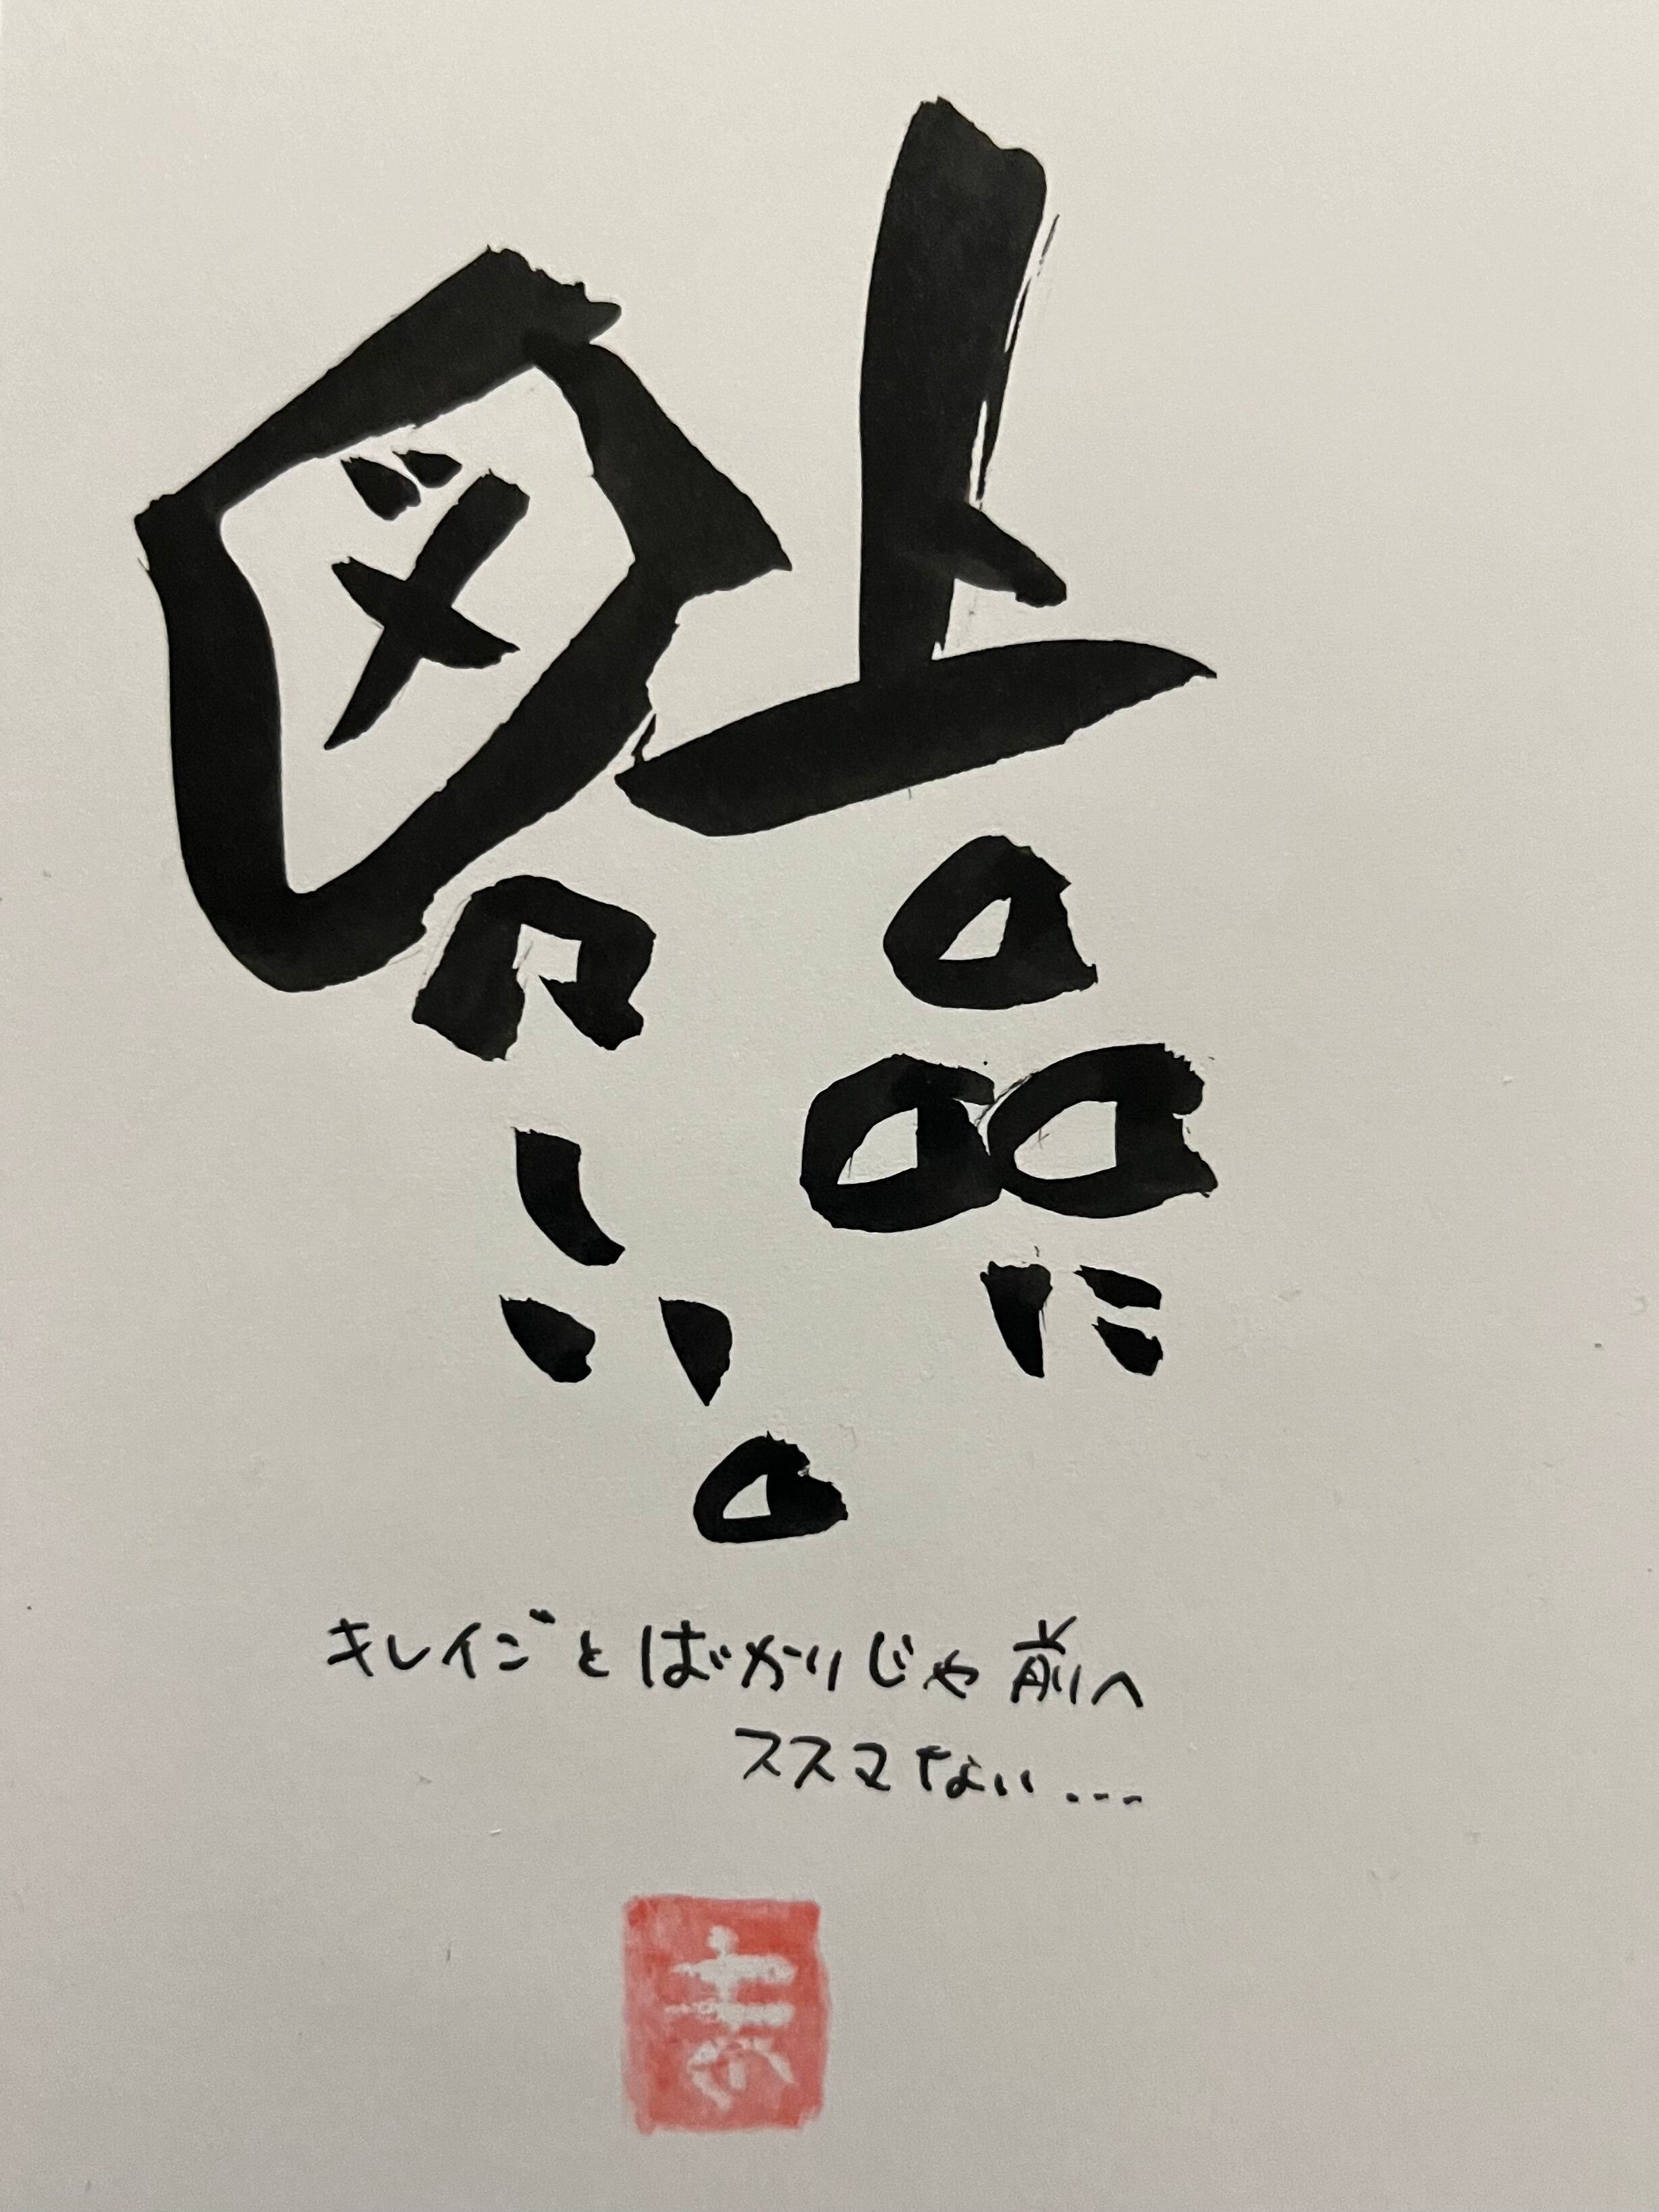 上品に
図々しい。
キレイごとばかりじゃ前へ
ススマない...